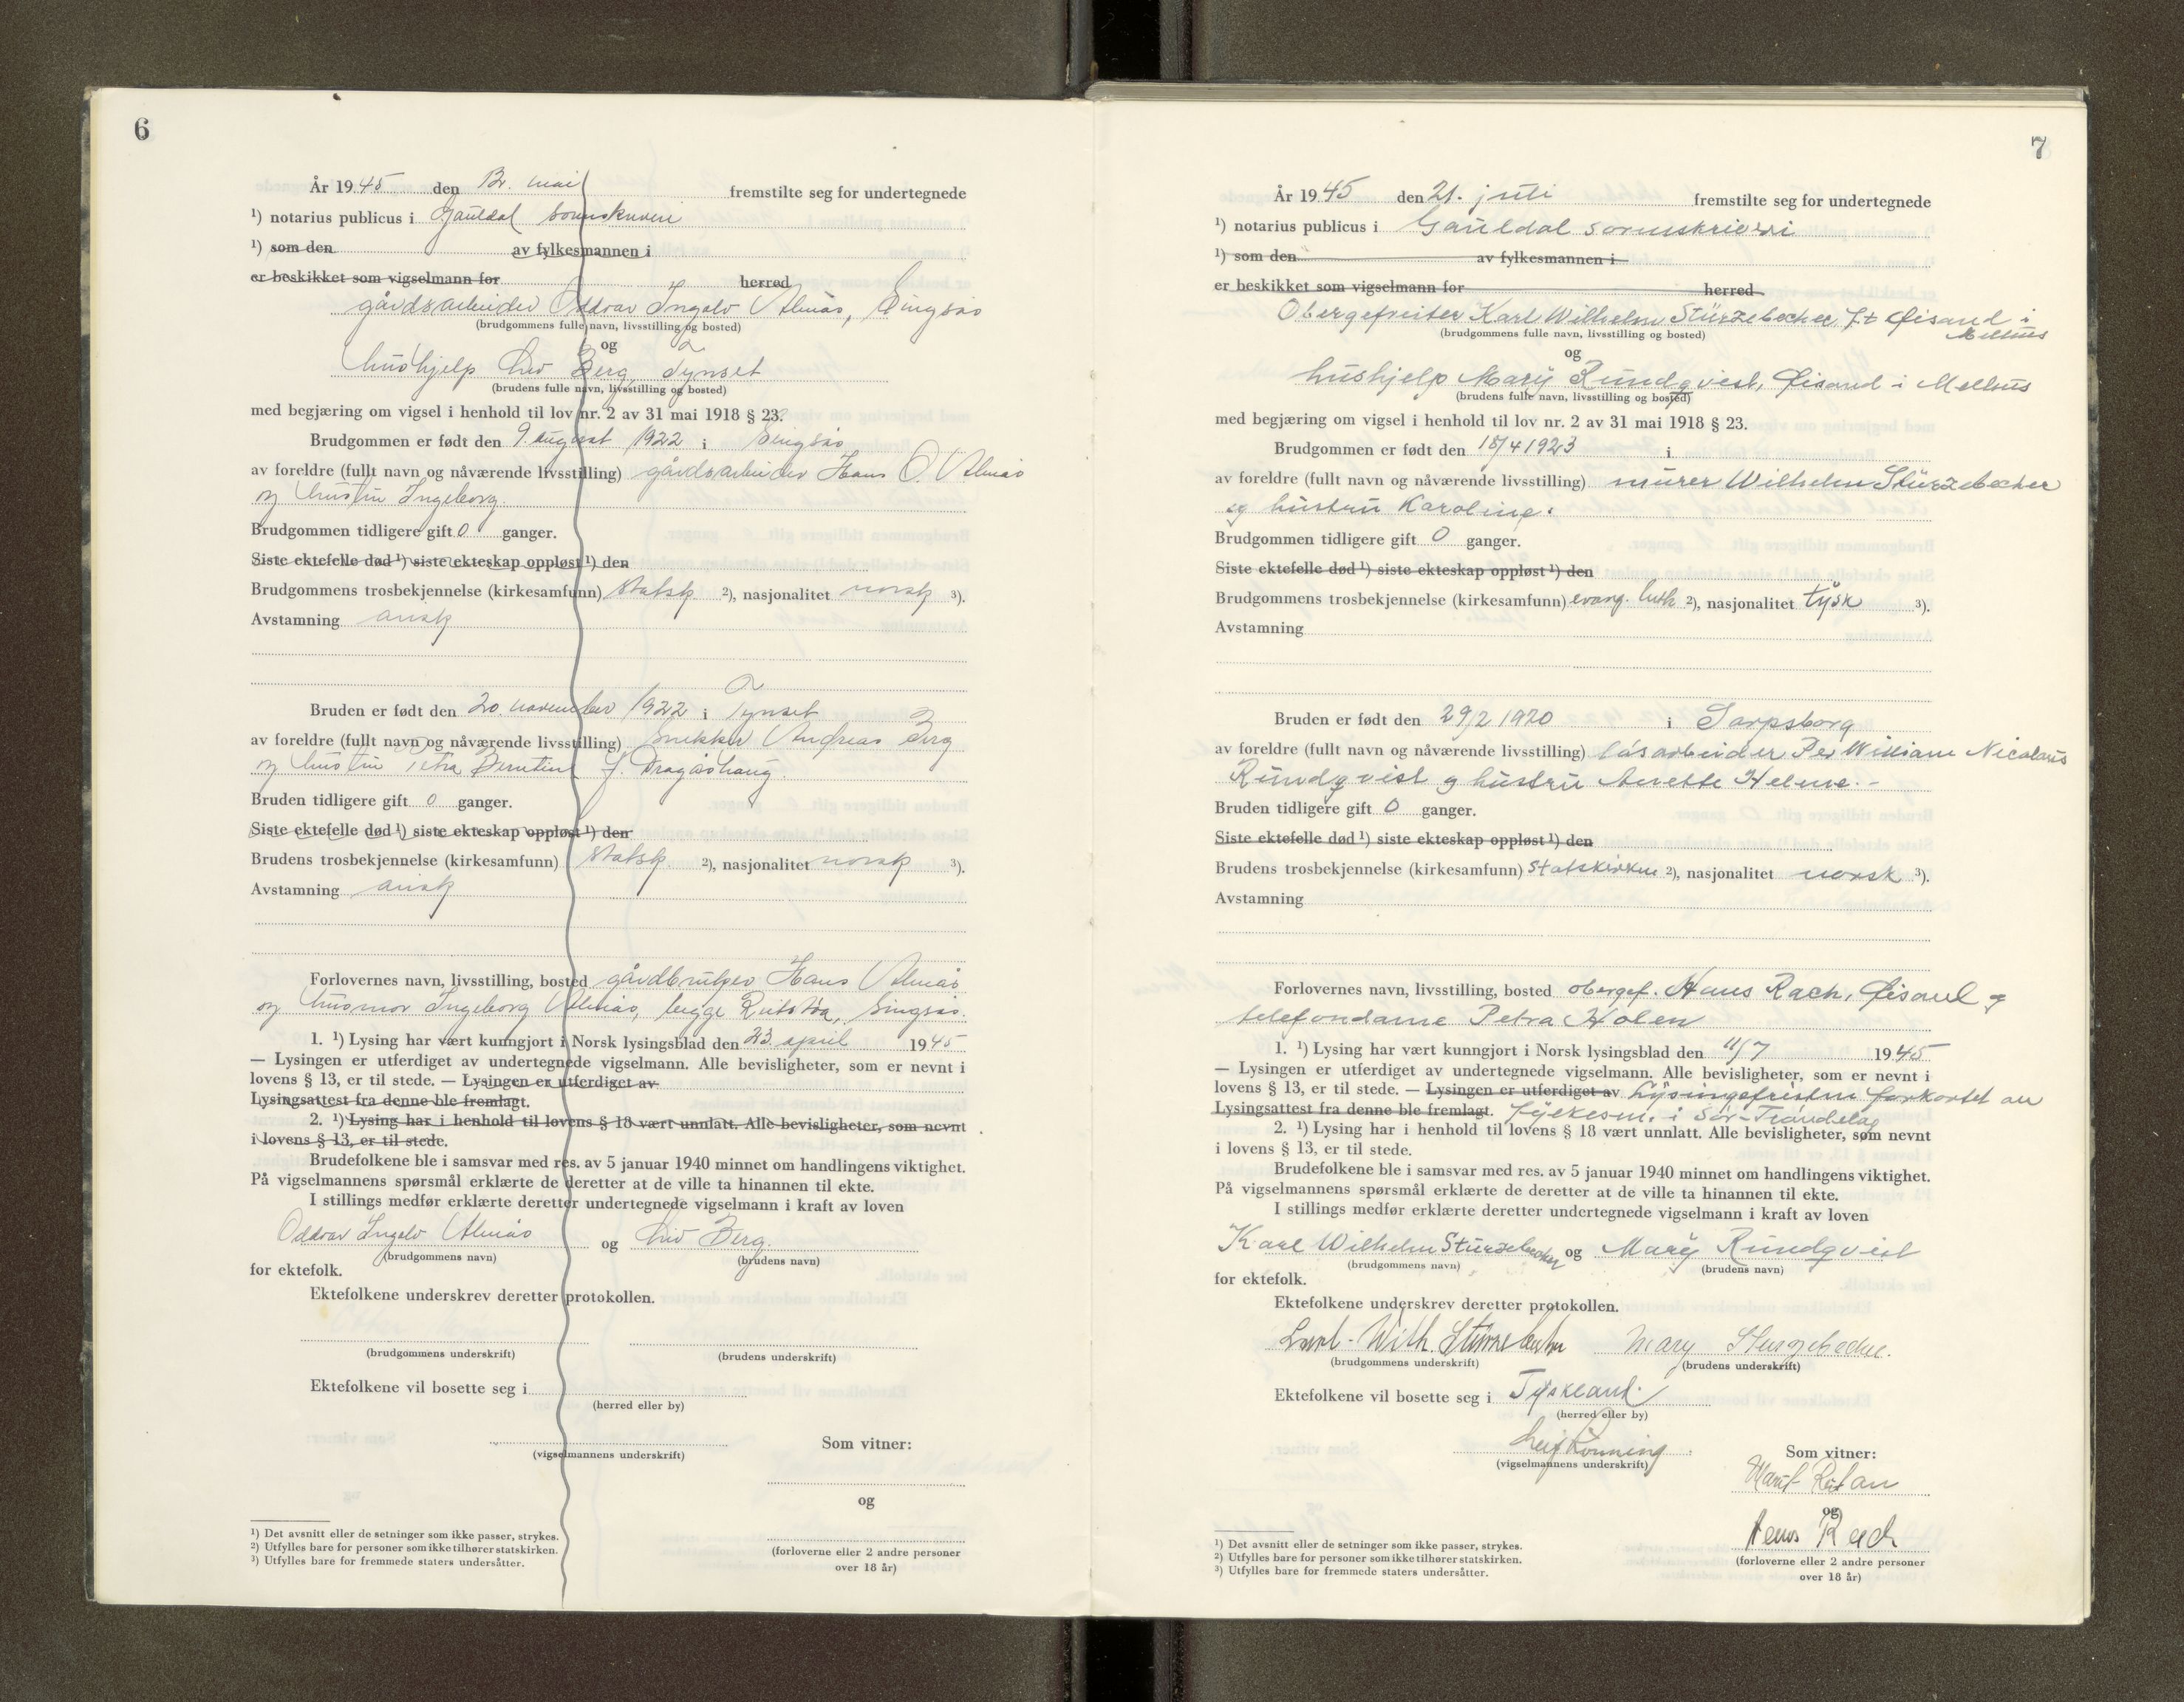 6
År 19 45 den 12. mai fremstilte seg for undertegnede
¹) notarius publicus i Gauldal sorenskriveri
¹) som den av fylkesmannen i
er beskikket som vigselmann for herred
gårdsarbeider Oddvar Ingolv Almås, Singsås
(brudgommens fulle navn, livsstilling og bosted)
og
hushjelp Liv Berg, Tynset
(brudens fulle navn, livsstilling og bosted)
med begjæring om vigsel i henhold til lov nr. 2 av 31 mai 1918 § 23.
Brudgommen er født den 9. august 1922 i Singsås
av foreldre (fullt navn og nåværende livsstilling) gårdsarbeider Hans O. Almås
og hustru Ingeborg.
Brudgommen tidligere gift 0 ganger.
Siste ektefelle død ¹) siste ekteskap oppløst ¹) den
Brudgommens trosbekjennelse (kirkesamfunn) statsk ²), nasjonalitet norsk ³).
Avstamning arisk
Bruden er født den 20. november 1922 i Tynset
av foreldre (fullt navn og nåværende livsstilling) snekker Andreas Berg
og hustru Petra Berntine f. Dragåshaug.
Bruden tidligere gift 0 ganger.
Siste ektefelle død ¹) siste ekteskap oppløst ¹) den
Brudens trosbekjennelse (kirkesamfunn) statsk. ²), nasjonalitet norsk ³).
Avstamning arisk
Forlovernes navn, livsstilling, bosted gårdbruker Hans Almås
og husmor Ingeborg Almås, begge Singsås.
1. ¹) Lysing har vært kunngjort i Norsk lysingsblad den 23. april 1945
— Lysingen er utferdiget av undertegnede vigselmann. Alle bevisligheter, som er nevnt i
lovens § 13, er til stede. — Lysingen er utferdiget av
Lysingsattest fra denne ble fremlagt.
2. ¹) Lysing har i henhold til lovens § 18 vært unnlatt. Alle bevisligheter, som nevnt
i lovens § 13, er til stede.
Brudefolkene ble i samsvar med res. av 5 januar 1940 minnet om handlingens viktighet.
På vigselmannens spørsmål erklærte de deretter at de ville ta hinannen til ekte.
I stillings medfør erklærte deretter undertegnede vigselmann i kraft av loven
Oddvar Ingolv Almås og Liv Berg.
(brudgommens navn) (brudens navn)
for ektefolk.
Ektefolkene underskrev deretter protokollen.
(brudgommens underskrift) (brudens underskrift)
Ektefolkene vil bosette seg i
(herred eller by)
Som vitner:
(vigselmannens underskrift)
og
¹) Det avsnitt eller de setninger som ikke passer, strykes.
²) Utfylles bare for personer som ikke tilhører statskirken.
³) Utfylles bare for fremmede staters undersåtter.
(forloverne eller 2 andre personer
over 18 år)
7
År 19 45 den 21. juli fremstilte seg for undertegnede
¹) notarius publicus i Gauldal sorenskriveri
¹) som den av fylkesmannen i
er beskikket som vigselmann for herred
Obergefreiter Karl Wilhelm Stürzebecher, f.t Øisand i
Melhus
(brudgommens fulle navn, livsstilling og bosted)
og
hushjelp Mary Rundqvist, Øisand i Melhus
(brudens fulle navn, livsstilling og bosted)
med begjæring om vigsel i henhold til lov nr. 2 av 31 mai 1918 § 23.
Brudgommen er født den 18/4 1923 i
av foreldre (fullt navn og nåværende livsstilling) murer Wilhelm Stürzebecher
og hustru Karoline.
Brudgommen tidligere gift 0 ganger.
Siste ektefelle død ¹) siste ekteskap oppløst ¹) den
Brudgommens trosbekjennelse (kirkesamfunn) evang. luth ²), nasjonalitet tysk ³).
Avstamning
Bruden er født den 29/2 1920 i Sarpsborg
av foreldre (fullt navn og nåværende livsstilling) løsarbeider Per William Nicolaus
Rundqvist og hustru Anette Helene.-
Bruden tidligere gift 0 ganger.
Siste ektefelle død ¹) siste ekteskap oppløst ¹) den
Brudens trosbekjennelse (kirkesamfunn) Statskirken ²), nasjonalitet norsk ³).
Avstamning
Forlovernes navn, livsstilling, bosted obergef. Hans Rach, Øisand og
telefondame Petra Holen
1. ¹) Lysing har vært kunngjort i Norsk lysingsblad den 11/7 1945
— Lysingen er utferdiget av undertegnede vigselmann. Alle bevisligheter, som er nevnt i
lovens § 13, er til stede. — Lysingen er utferdiget av Lysingsfristen forkortet av
Lysingsattest fra denne ble fremlagt. fylkesm. i Sør-Trøndelag
2. ¹) Lysing har i henhold til lovens § 18 vært unnlatt. Alle bevisligheter, som nevnt
i lovens § 13, er til stede.
Brudefolkene ble i samsvar med res. av 5 januar 1940 minnet om handlingens viktighet.
På vigselmannens spørsmål erklærte de deretter at de ville ta hinannen til ekte.
I stillings medfør erklærte deretter undertegnede vigselmann i kraft av loven
Karl Wilhelm Stürzebecher og Mary Rundqvist
(brudgommens navn) (brudens navn)
for ektefolk.
Ektefolkene underskrev deretter protokollen.
Karl-Wilh. Stürzebecher Mary Sturzebecher.
(brudgommens underskrift) (brudens underskrift)
Ektefolkene vil bosette seg i Tyskland.
(herred eller by)
Leif Rønning
(vigselmannens underskrift)
Som vitner:
Marit
og
Hans Rach
¹) Det avsnitt eller de setninger som ikke passer, strykes.
²) Utfylles bare for personer som ikke tilhører statskirken.
³) Utfylles bare for fremmede staters undersåtter.
(forloverne eller 2 andre personer
over 18 år)